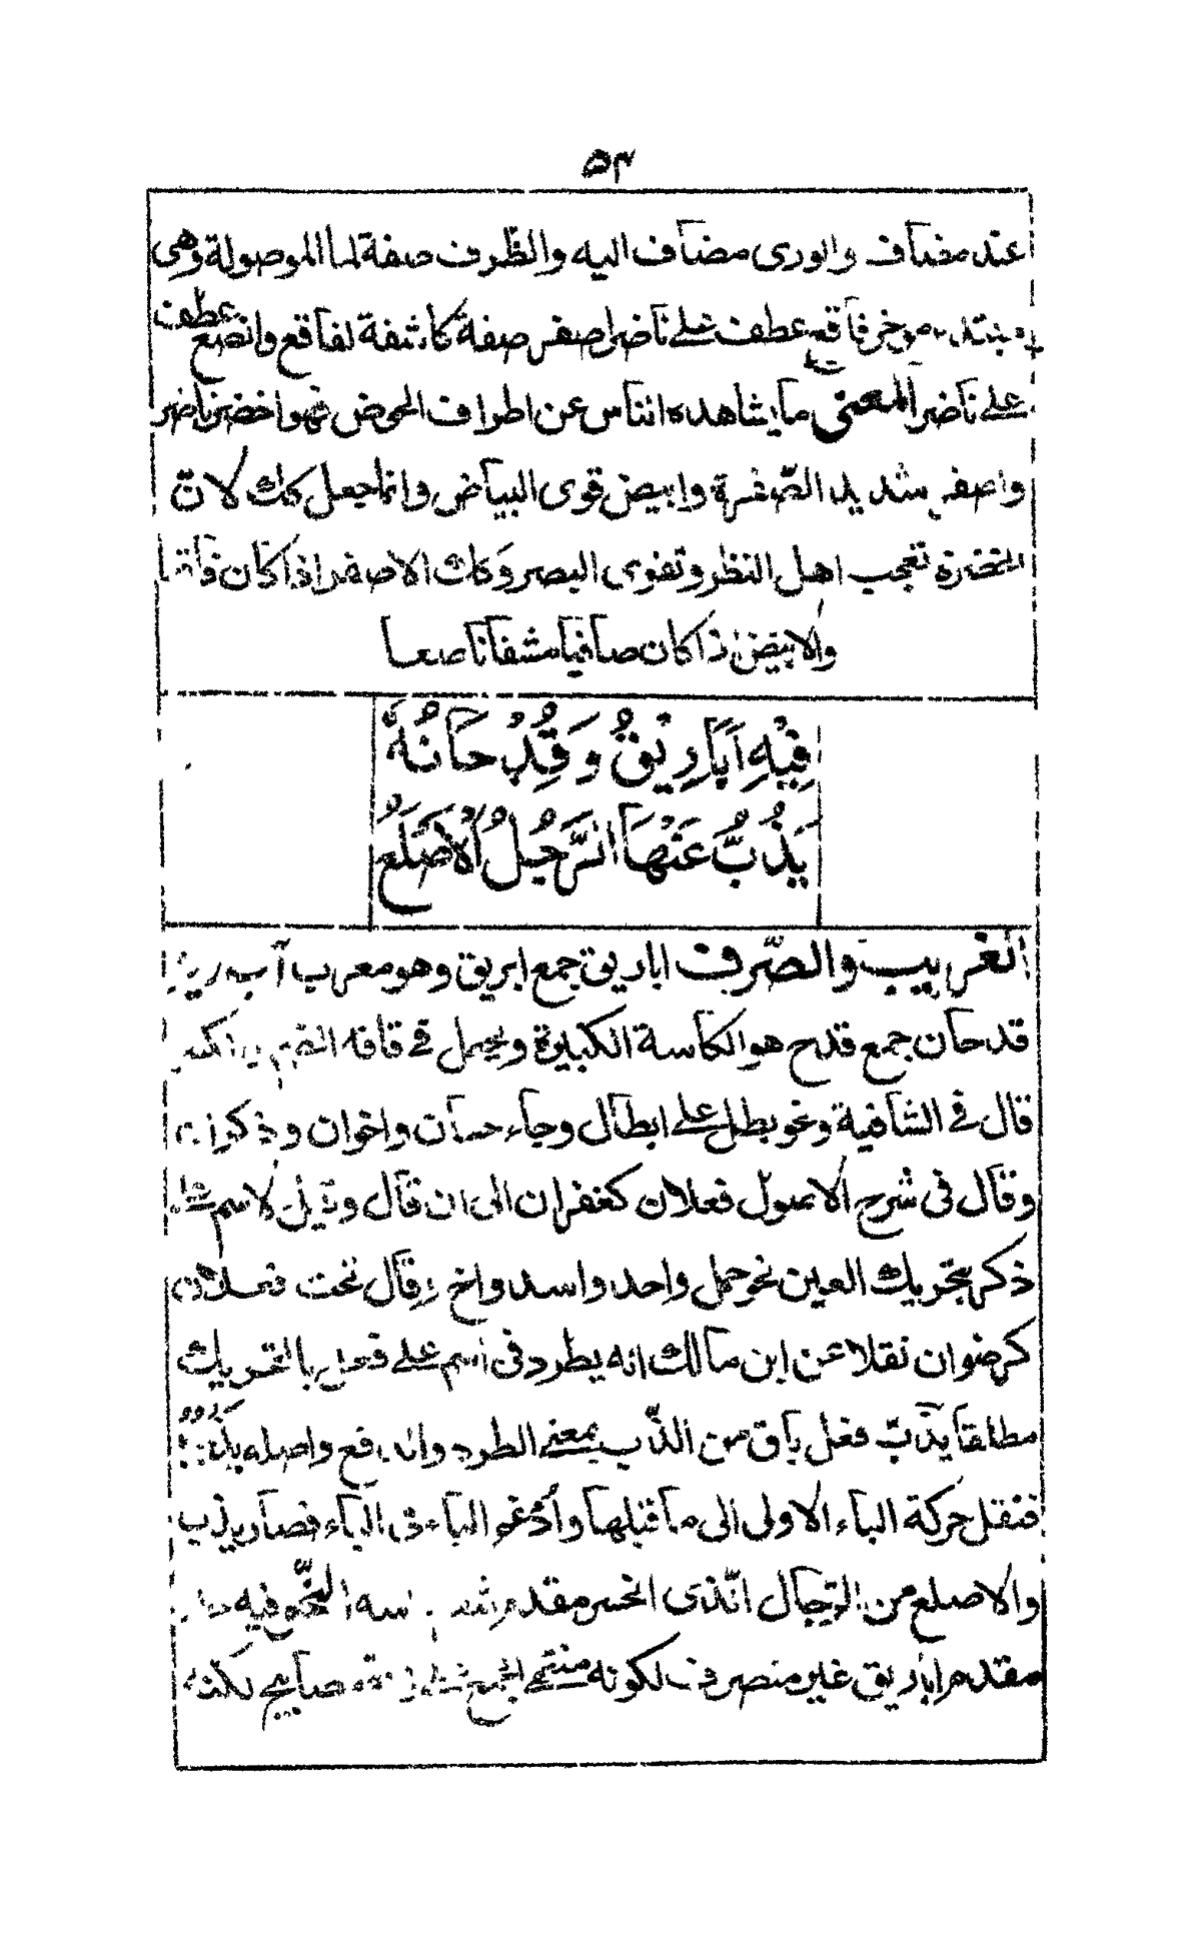 ٥٣
عند مضاف والورى مضاف اليه والظرف صفة لما الموصولة وهى
مبتدء موخر فاقع عطف على ناضر اصفر صفة كاشفة لفاقع وانصع عطف
على ناضر المعنى ما يشاهده الناس عن اطراف الحوض فهو اخضر ناضر
واصفر شديد الصفرة وابيض قوى البياض وانما جعل كك لان
الخضرة تعجب اهل النظر وتقوى البصر وكك الاصفر اذا كان فاقعا
والابيض اذا كان صافيا مشفا ناصعا
فِيْهِ اَبَارِيْقُ وَقُِدْحَانُهُ
يَذُبُّ عَنْهَا الرَّجُلُ الْاَصْلَعُ
الغريب والصّرف اباريق جمع ابريق وهو معرب آب ريز
قدحان جمع قدح هو الكاسة الكبيرة ويحتمل فى قافه الضم والكسر
قال فى الشافية ونحو بطل على ابطال وجاء حسان واخوان وذكران
وقال فى شرح الاصول فعلان كغفران الى ان قال وقيل لاسم على
ذكر بتحريك العين نحو حمل واحد واسد واخ وقال تحت فعلان
كرضوان نقلا عن ابن مالك انه يطرد فى اسم على فعل بالتحريك
مطلقا يذبّ فعل باق من الذّب بمعنى الطرد والدفع واصله يذبب
فنقل حركة الباء الاولى الى ما قبلها وأدغم الباء فى الباء فصار يذب
والاصلع من الرّجال الّذى انحسر مقدم شعر راسه النّحو فيه
مقدم اباريق غير منصرف لكونه منتهى الجمع على زنة مصابيح لكنه